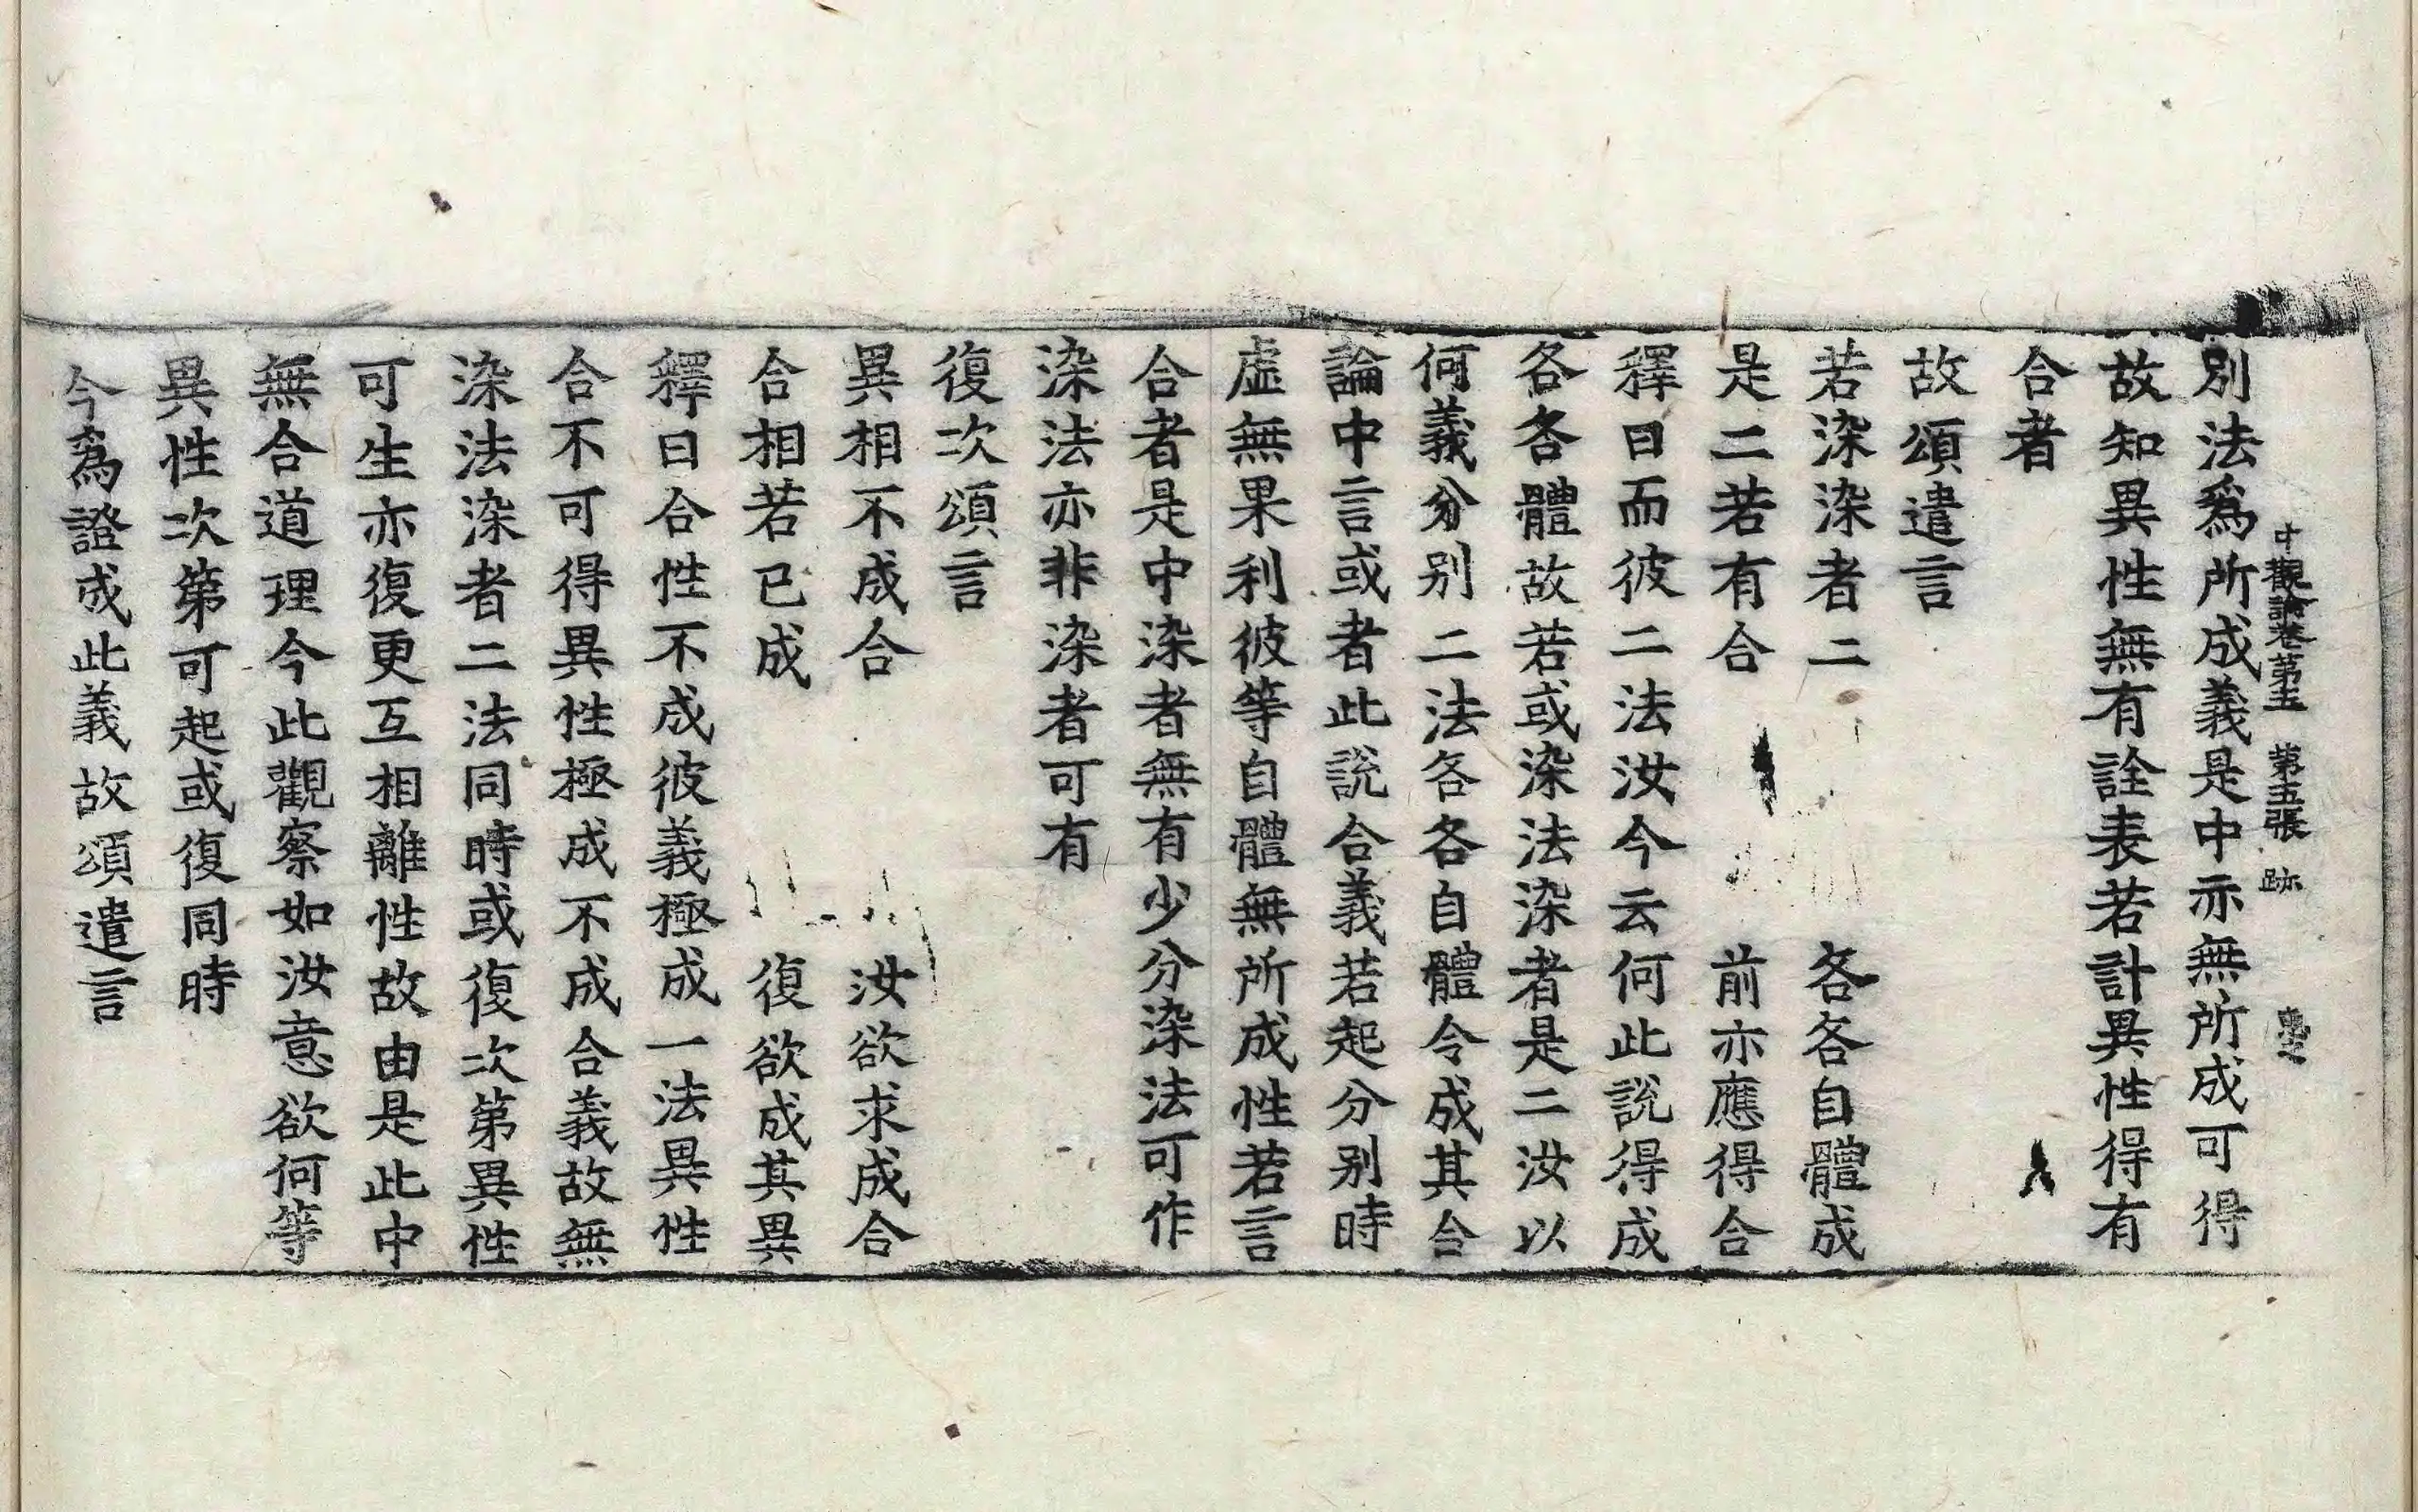 中觀論卷第五　第五張　跡
別法爲所成義是中亦無所成可得
故知異性無有詮表若計異性得有
合者
故頌遣言
若染染者二　各各自體成
是二若有合　前亦應得合
釋曰而彼二法汝今云何此說得成
各各體故若或染法染者是二汝以
何義分別二法各各自體令成其合
論中言或者此說合義若起分別時
虛無果利彼等自體無所成性若言
合者是中染者無有少分染法可作
染法亦非染者可有
復次頌言
異相不成合　汝欲求成合
合相若已成　復欲成其異
釋曰合性不成彼義極成一法異性
合不可得異性極成不成合義故無
染法染者二法同時或復次第異性
可生亦復更互相離性故由是此中
無合道理今此觀察如汝意欲何等
異性次第可起或復同時
今爲證成此義故頌遣言